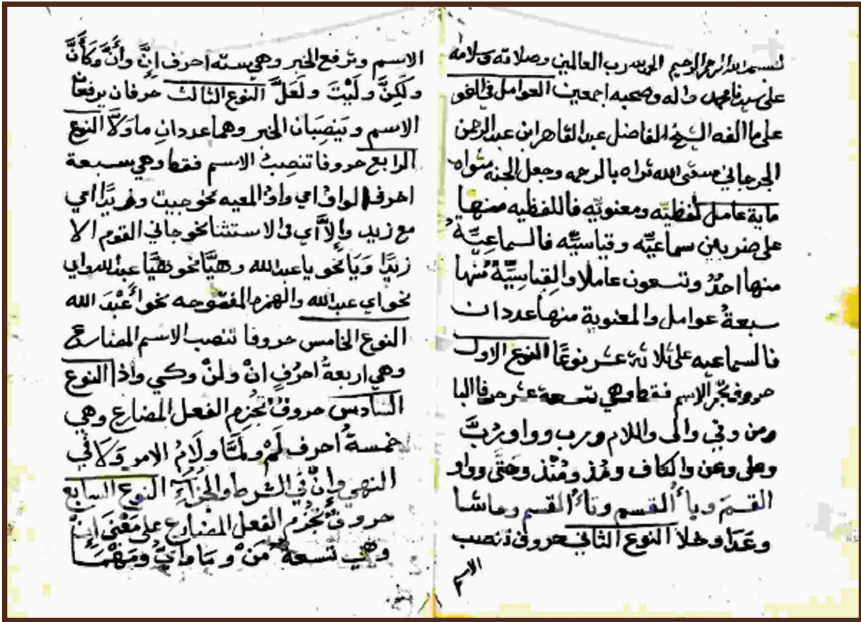 بسم الله الرحمن الرحيم الحمد لله رب العالمين وصلاته وسلامه
على سيدنا محمد واله وصحبه اجمعين العوامل في النحو
على ما الفه الشيخ الفاضل عبد القاهر ابن عبد الرحمن
الجرجاني سقى الله ثراه بالرحمه وجعل الجنة مثواه
ماية عامل لفظيّه ومعنويّه فاللفظيه منها
على ضربين سماعيّه وقياسيّه فالسماعيّة
منها احدٌ وتسعون عاملا والقياسيّة منها
سبعة عوامل والمعنوية منها عددان
فالسماعيه على ثلاثة عشر نوعًا النوع الاول
حروف تجر الاسم فقط وهي تسعة عشر حرفا البا
ومن وفي والى واللام ورب وواو ربَّ
وعلى وعن والكاف ومذ ومنذ وحتى وواو
القسم وباءُ القسم وتاءُ القسم وحاشا
وعدا وخلا النوع الثاني حروف تنصب
الاسم
الاسم وترفع الخبر وهي ستة احرف إنَّ وأنَّ وكأنَّ
ولكنَّ وليتَ ولعلَّ النوع الثالث حرفان يرفعان
الاسم وينصبان الخبر وهما عددان ما ولا النوع
الرابع حروفا تنصبُ الاسم فقط وهي سبعة
احرف الواو اي واو المعيه نحو جيت وزيدًا اي
مع زيد والّا اي في الاستثنا نحو جاني القوم الا
زيدًا ويا نحو يا عبد الله وهيَّا نحو هيَّا عبد الله واي
نحو اي عبد الله والهمزه المفتوحه نحو أعَبْدَ الله
النوع الخامس حروفا تنصب الاسم المضارع
وهي اربعة احرُفٍ انْ ولنْ وكي واذا النوع
السادس حروفٌ تجزم الفعل المضارع وهي
خمسةُ احرف لَمْ ولمَّا ولَامُ الامر ولا في
النهي وإنْ في الشرط والجزاءِ النوع السابع
حروفٌ تجزم الفعل المضارع على معنَى إنْ
وهي تسعة مَنْ وما وايُّ ومَهْمَا